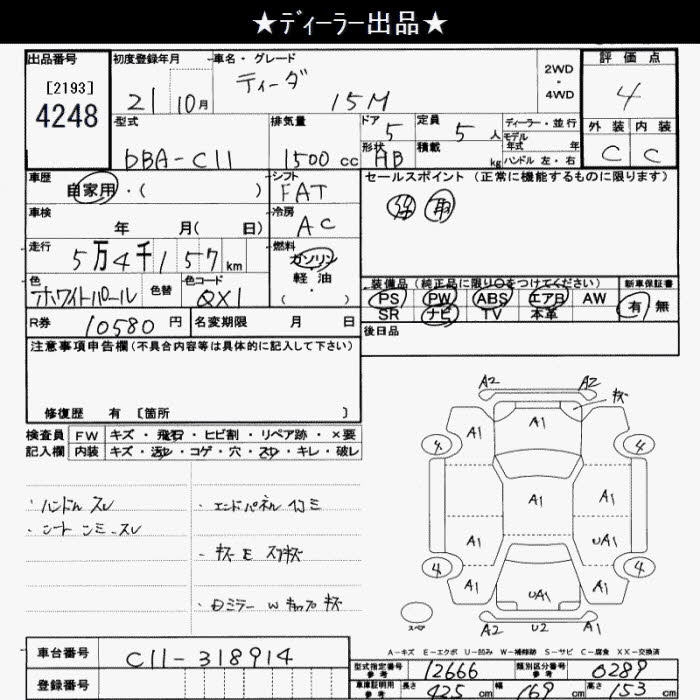 ★ディーラー出品★
出品番号 初度登録年月 車名・グレード 2WD・4WD 評価点
[2193] 21 10月 ティーダ 4
4248 15M
型式 排気量 ドア 5 定員 5人 ディーラー・並行 外装 内装
モデル年式 年
DBA-C11 1500cc 形状 HB 積載 kg ハンドル 左・右 C C
車歴 シフト セールスポイント(正常に機能するものに限ります)
自家用・( ) FAT 取
車検 冷房
年 月( 日) AC
走行 燃料
5万4千157km ガソリン
軽油
・
( )
色 色替 色コード 装備品(純正品に限り○をつけてください) 新車保証書
ホワイトパール QX1 PS PW ABS エアB AW 有 無
SR ナビ TV 本革
R券 10580円 名変期限 月 日 後日品
注意事項申告欄(不具合内容等は具体的に記入して下さい)
修復歴 有 [箇所 ]
検査員 FW キズ・飛石・ヒビ割・リペア跡・×要
記入欄 内装 キズ・汚レ・コゲ・穴・スレ・キレ・破レ
・ハンドル スレ
・シート シミ・スレ
・エンドパネル 凹ミ
・キズ E スリキズ
・Dミラー W キャップ キズ
A2 A2
キズ
A1 A1 A1
4 4
A1 A1
A1 UA1
4 4
A1 UA1 A1
スペア A2 U2 A1
A-キズ E-エクボ U-凹み W-補修跡 S-サビ C-腐食 XX-交換済
車台番号 C11-318914
登録番号
型式指定番号 参考 12666 類別区分番号 参考 0289
車庫証明用 参考 長さ 425cm 幅 169cm 高さ 153cm